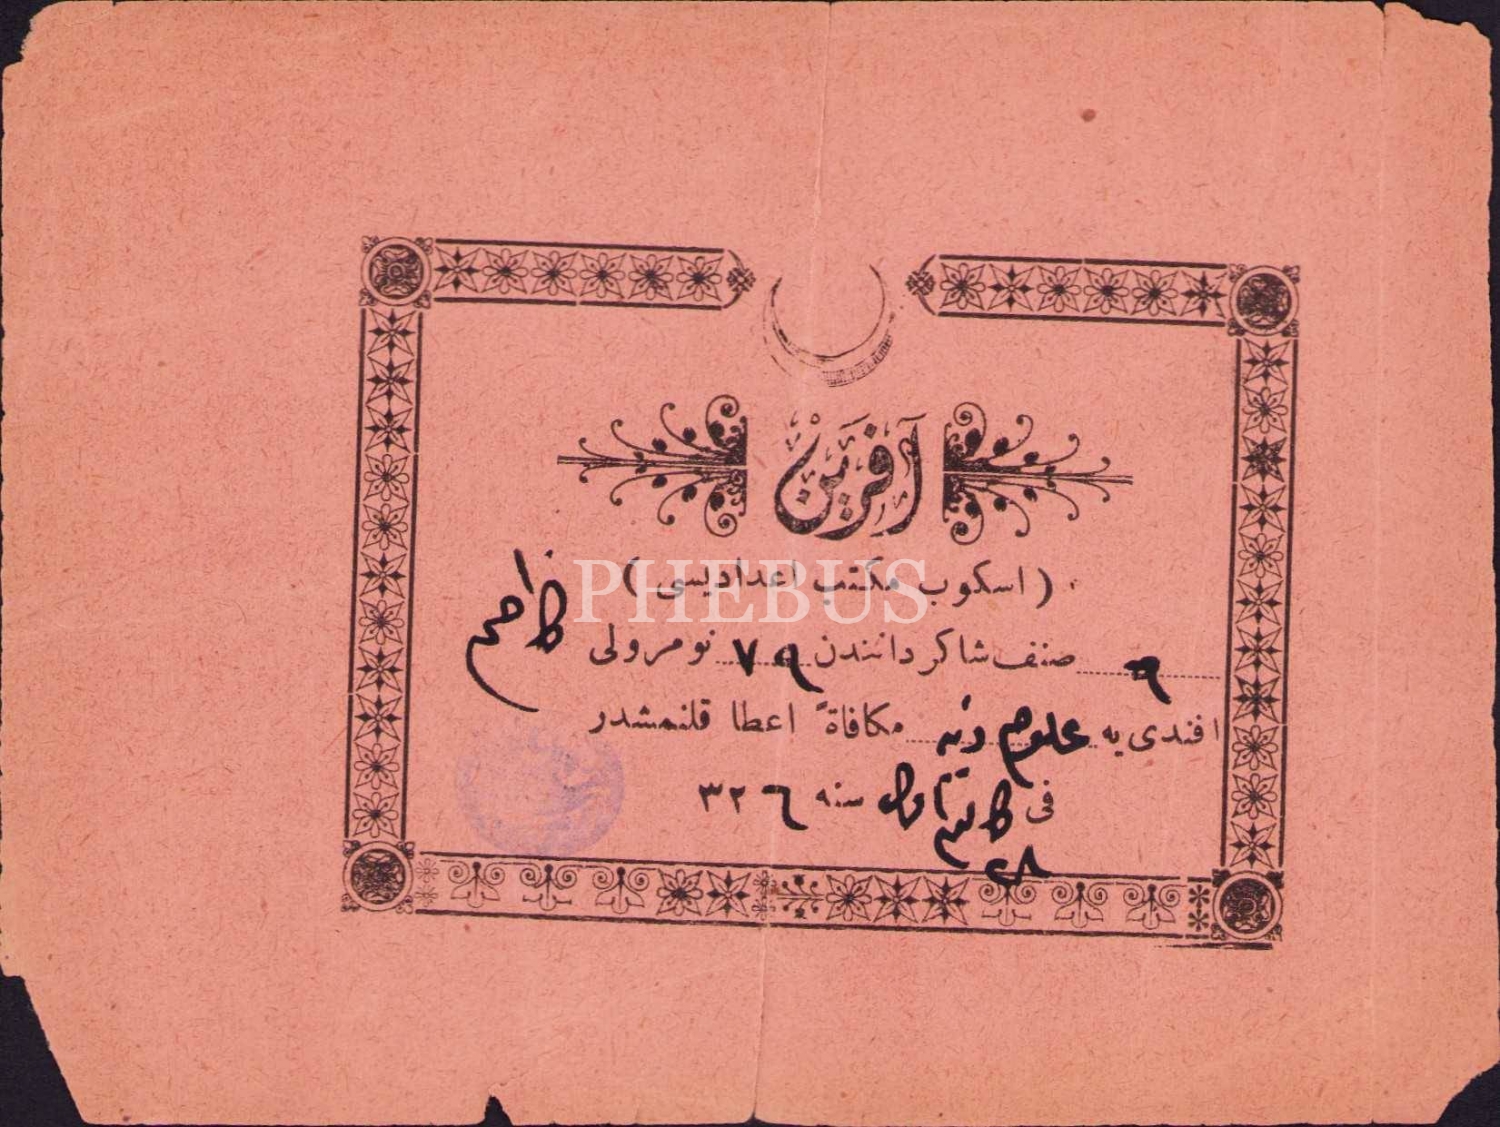 آفرين
( اسكوب مكتب اعداديسى )
صنف شاكردانندن ٧٩ نومرولى كاظم
افندى يه علوم دينيه مكافاةً اعطا قلنمشدر
فى ٢٨ كانون اول سنه ٣٢٦
PHEBUS